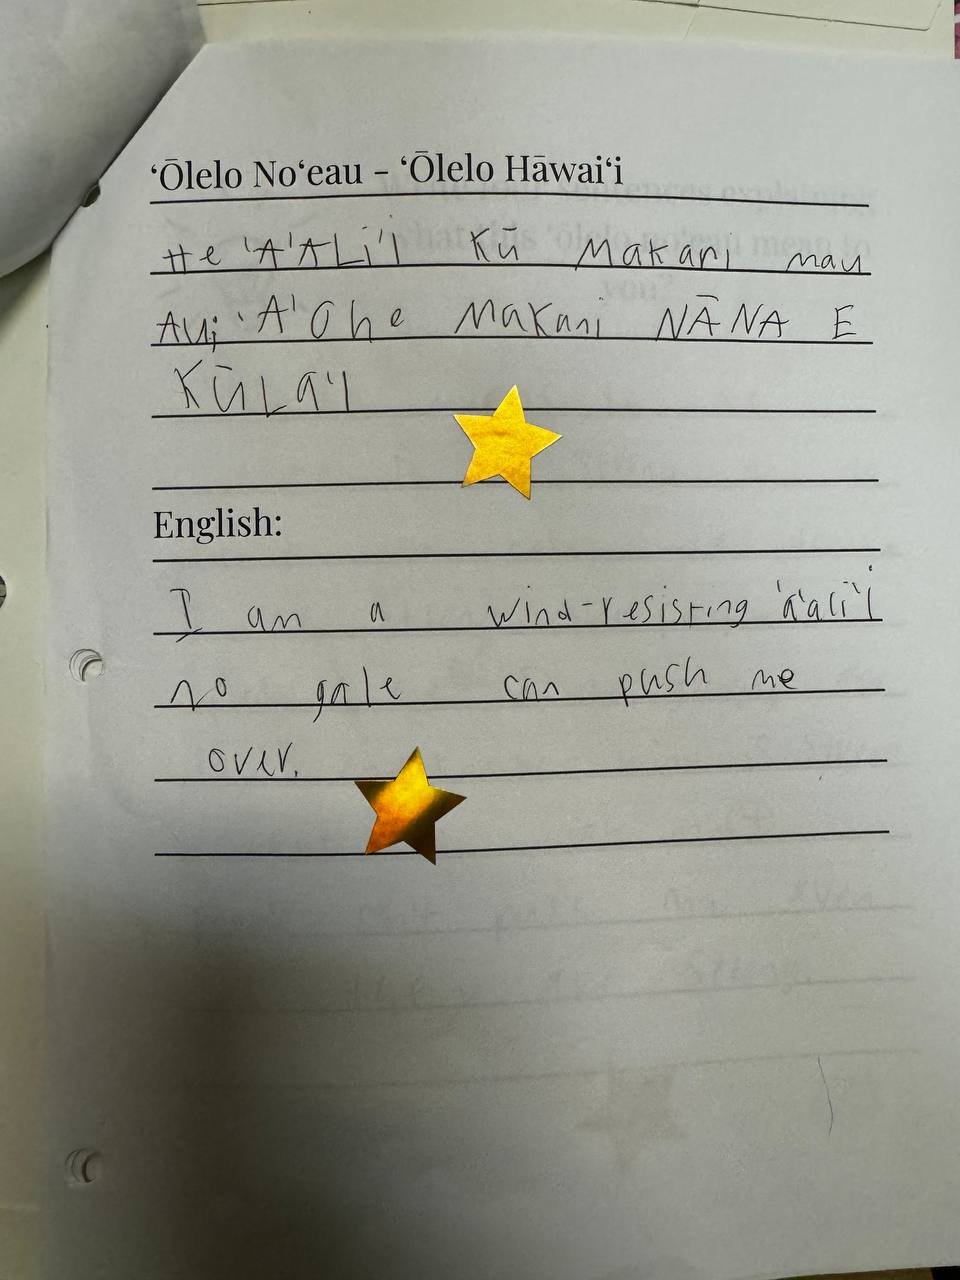 ʻŌlelo Noʻeau - ʻŌlelo Hāwaiʻi
He 'A'ALi'i KŪ Makani mau
AUi 'A'Ohe Makani NĀNA E
KŪLA'I
English:
I am a wind-resisting 'a'ali'i
no gale can push me
over.